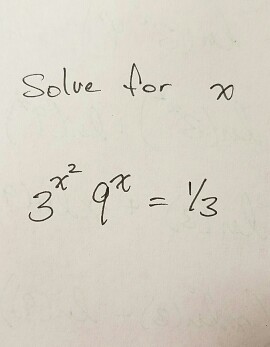 Solve for x
3^{x^2} 9^x = 1/3